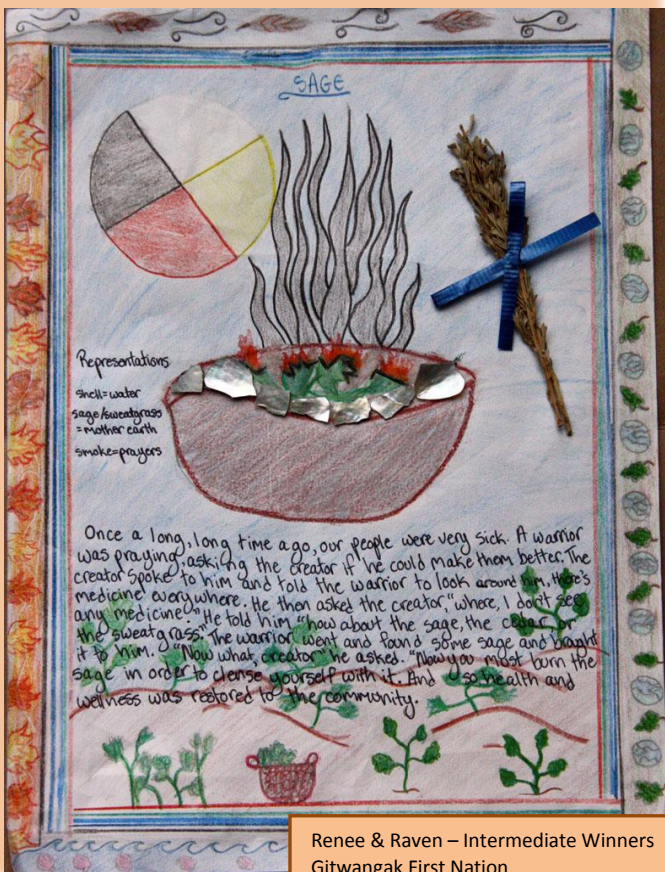 SAGE
Representations
shell=water
sage/sweatgrass
=mother earth
smoke=prayers
Once a long, long time ago, our people were very sick. A warrior
was praying, asking the creator if he could make them better. The
creator spoke to him and told the warrior to look around him, there's
medicine everywhere. He then asked the creator, "where, I don't see
any medicine." He told him "how about the sage, the cedar, or
the sweatgrass." The warrior went and found some sage and brought
it to him. "Now what, creator" he asked. "Now you must burn the
sage in order to clense yourself with it. And so health and
wellness was restored to the community.
Renee & Raven – Intermediate Winners
Gitwangak First Nation